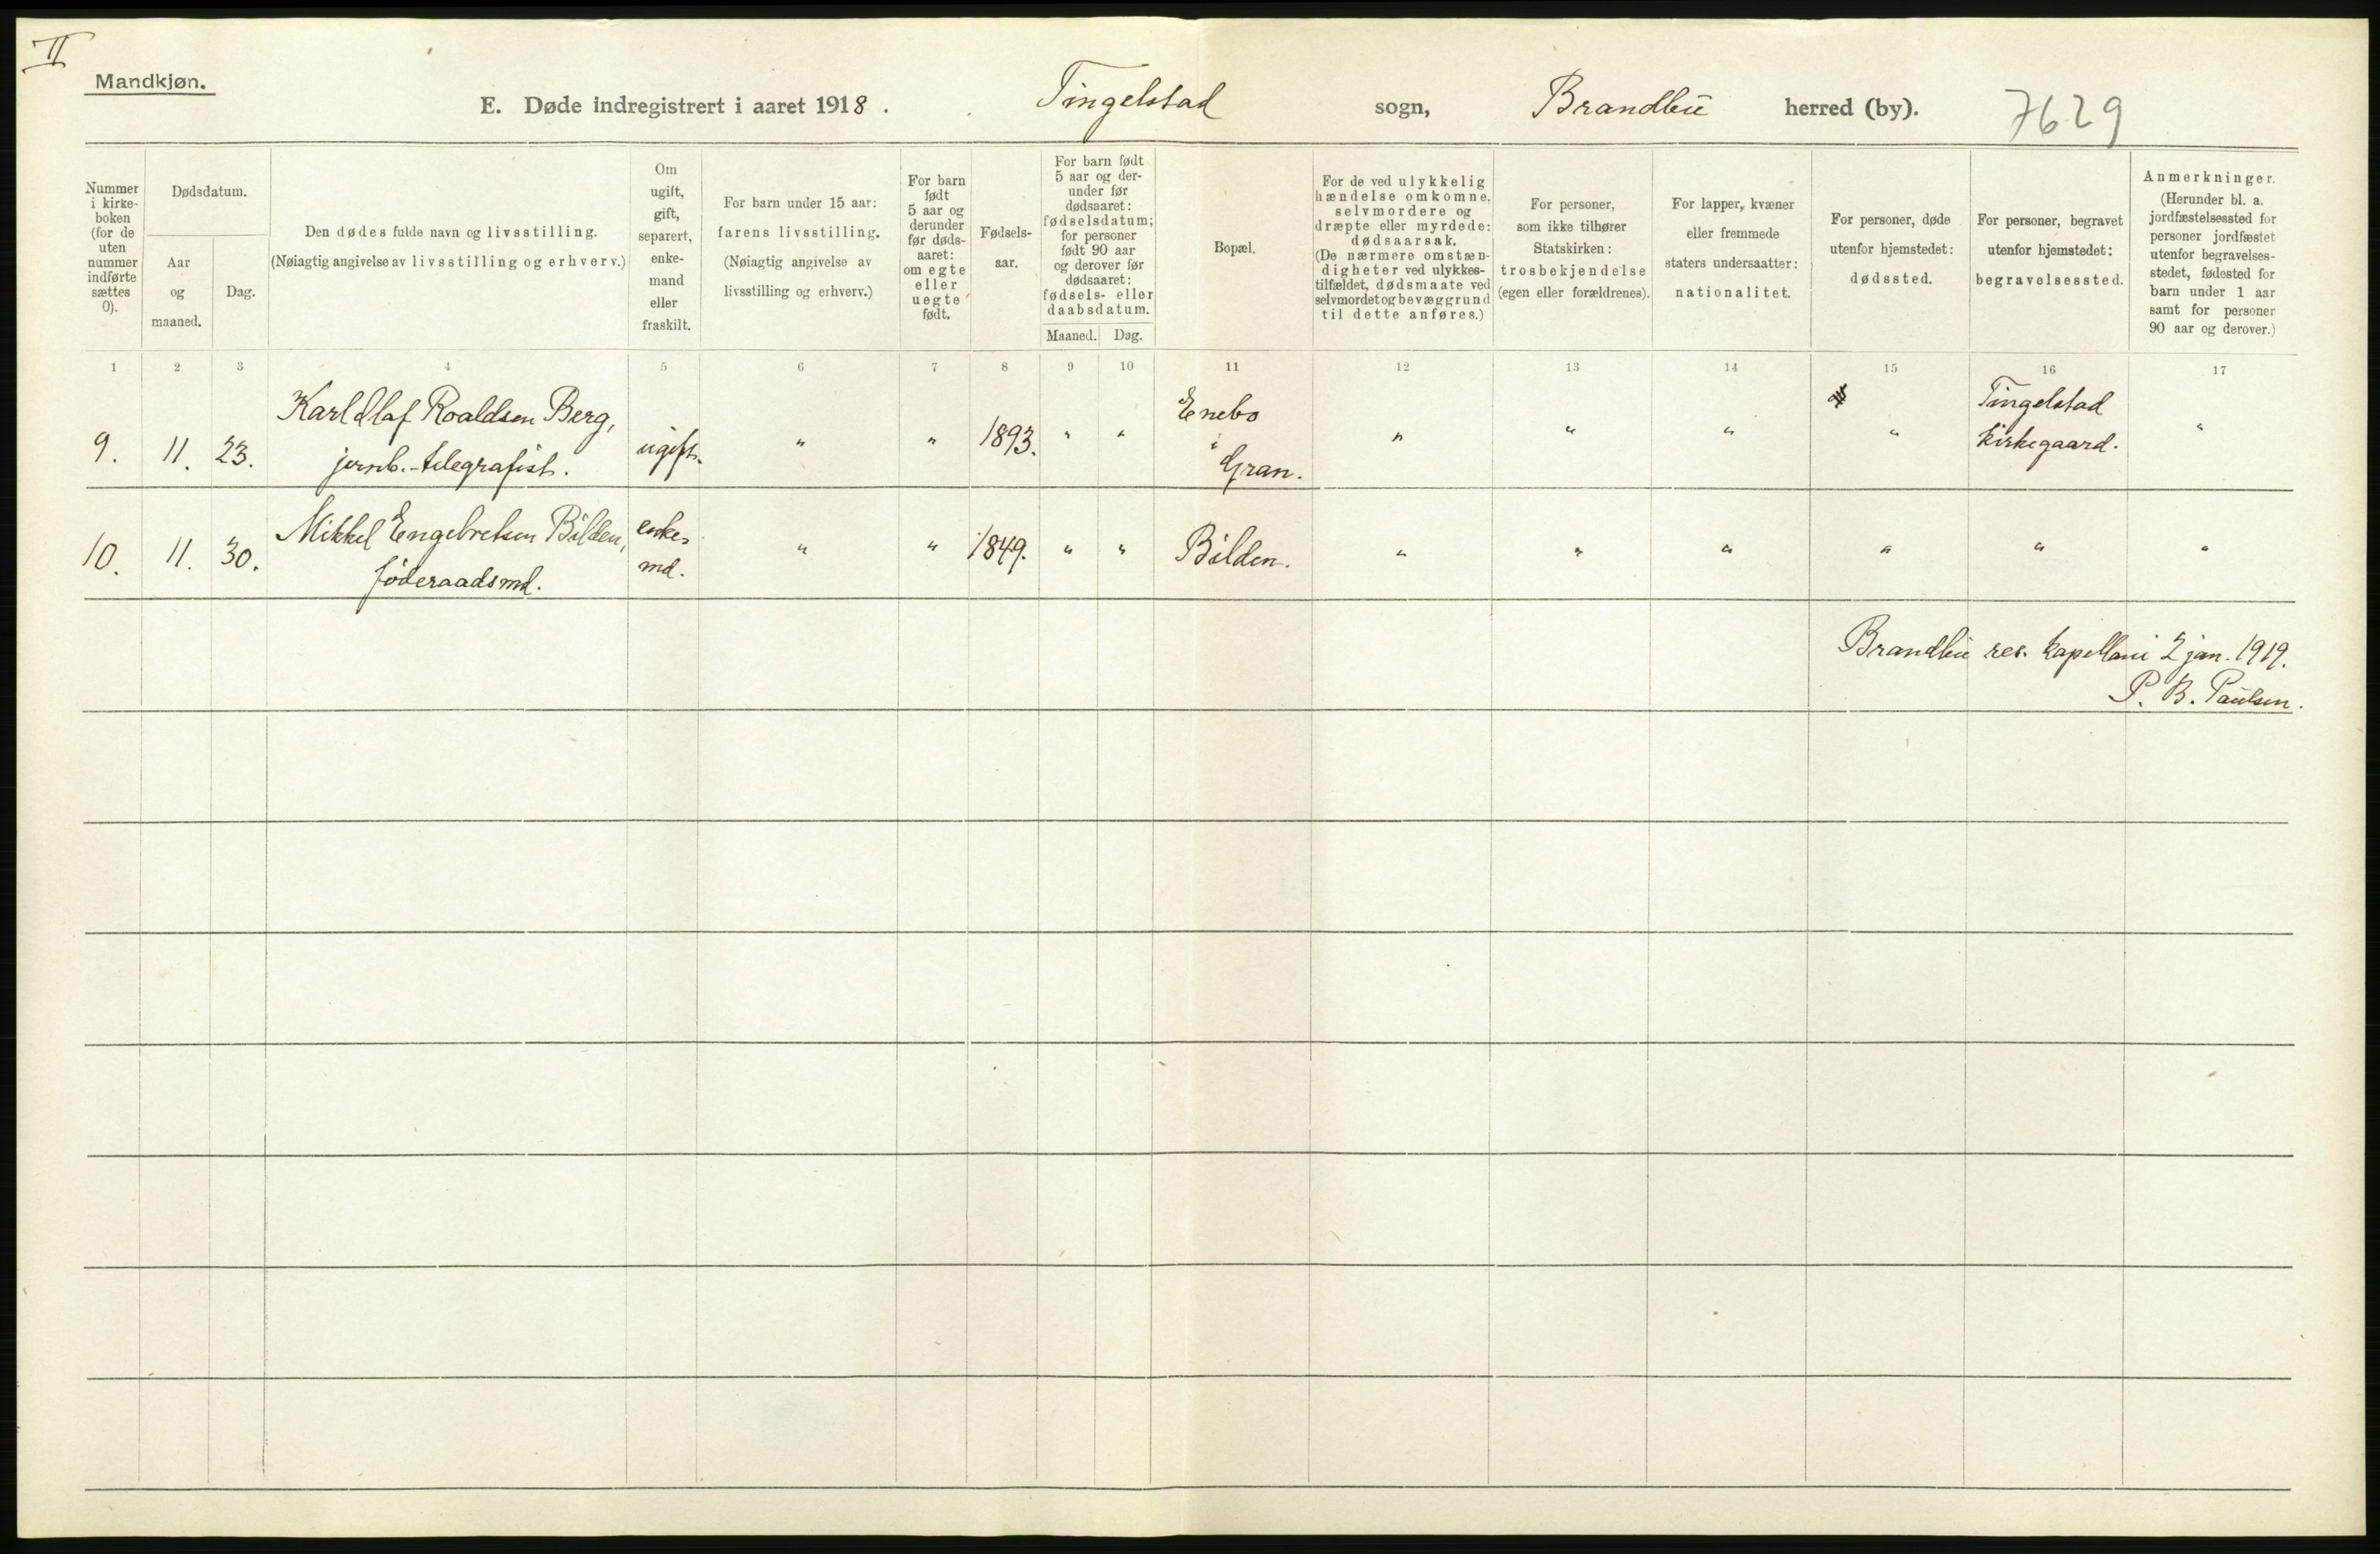 II
Mandkjøn.
E. Døde indregistrert i aaret 1918. Tingelstad sogn, Brandbu herred (by). 7629
Nummer
i kirke-
boken
(for de
uten
nummer
indførte
sættes
0).
Dødsdatum.
Aar
og
maaned.
Dag.
Den dødes fulde navn og livsstilling.
(Nøiagtig angivelse av livsstilling og erhverv.)
Om
ugift,
gift,
separert,
enke-
mand
eller
fraskilt.
For barn under 15 aar:
farens livsstilling.
(Nøiagtig angivelse av
livsstilling og erhverv.)
For barn
født
5 aar og
derunder
før døds-
aaret:
om egte
eller
uegte
født.
Fødsels-
aar.
For barn født
5 aar og der-
under før
dødsaaret:
fødselsdatum;
for personer
født 90 aar
og derover før
dødsaaret:
fødsels- eller
daabsdatum.
Maaned. Dag.
Bopæl.
For de ved ulykkelig
hændelse omkomne,
selvmordere og
dræpte eller myrdede:
dødsaarsak.
(De nærmere omstæn-
digheter ved ulykkes-
tilfældet, dødsmaate ved
selvmordet og bevæggrund
til dette anføres.)
For personer,
som ikke tilhører
Statskirken:
trosbekjendelse
(egen eller forældrenes).
For lapper, kvæner
eller fremmede
staters undersaatter:
nationalitet.
For personer, døde
utenfor hjemstedet:
dødssted.
For personer, begravet
utenfor hjemstedet:
begravelsessted.
Anmerkninger.
(Herunder bl. a.
jordfæstelsessted for
personer jordfæstet
utenfor begravelses-
stedet, fødested for
barn under 1 aar
samt for personer
90 aar og derover.)
1 2 3 4 5 6 7 8 9 10 11 12 13 14 15 16 17
9. 11. 23. Karl Olaf Roaldsen Berg,
jernb.-telegrafist.
ugift. " " 1893. " " Enebo
i
Gran.
" " " " Tingelstad
kirkegaard.
"
10. 11. 30. Mikkel Engebretsen Bilden,
føderaadsmd.
enke-
md.
" " 1849. " " Bilden. " " " " " "
Brandbu res. kapellani 2 jan. 1919.
P. B. Paulsen.